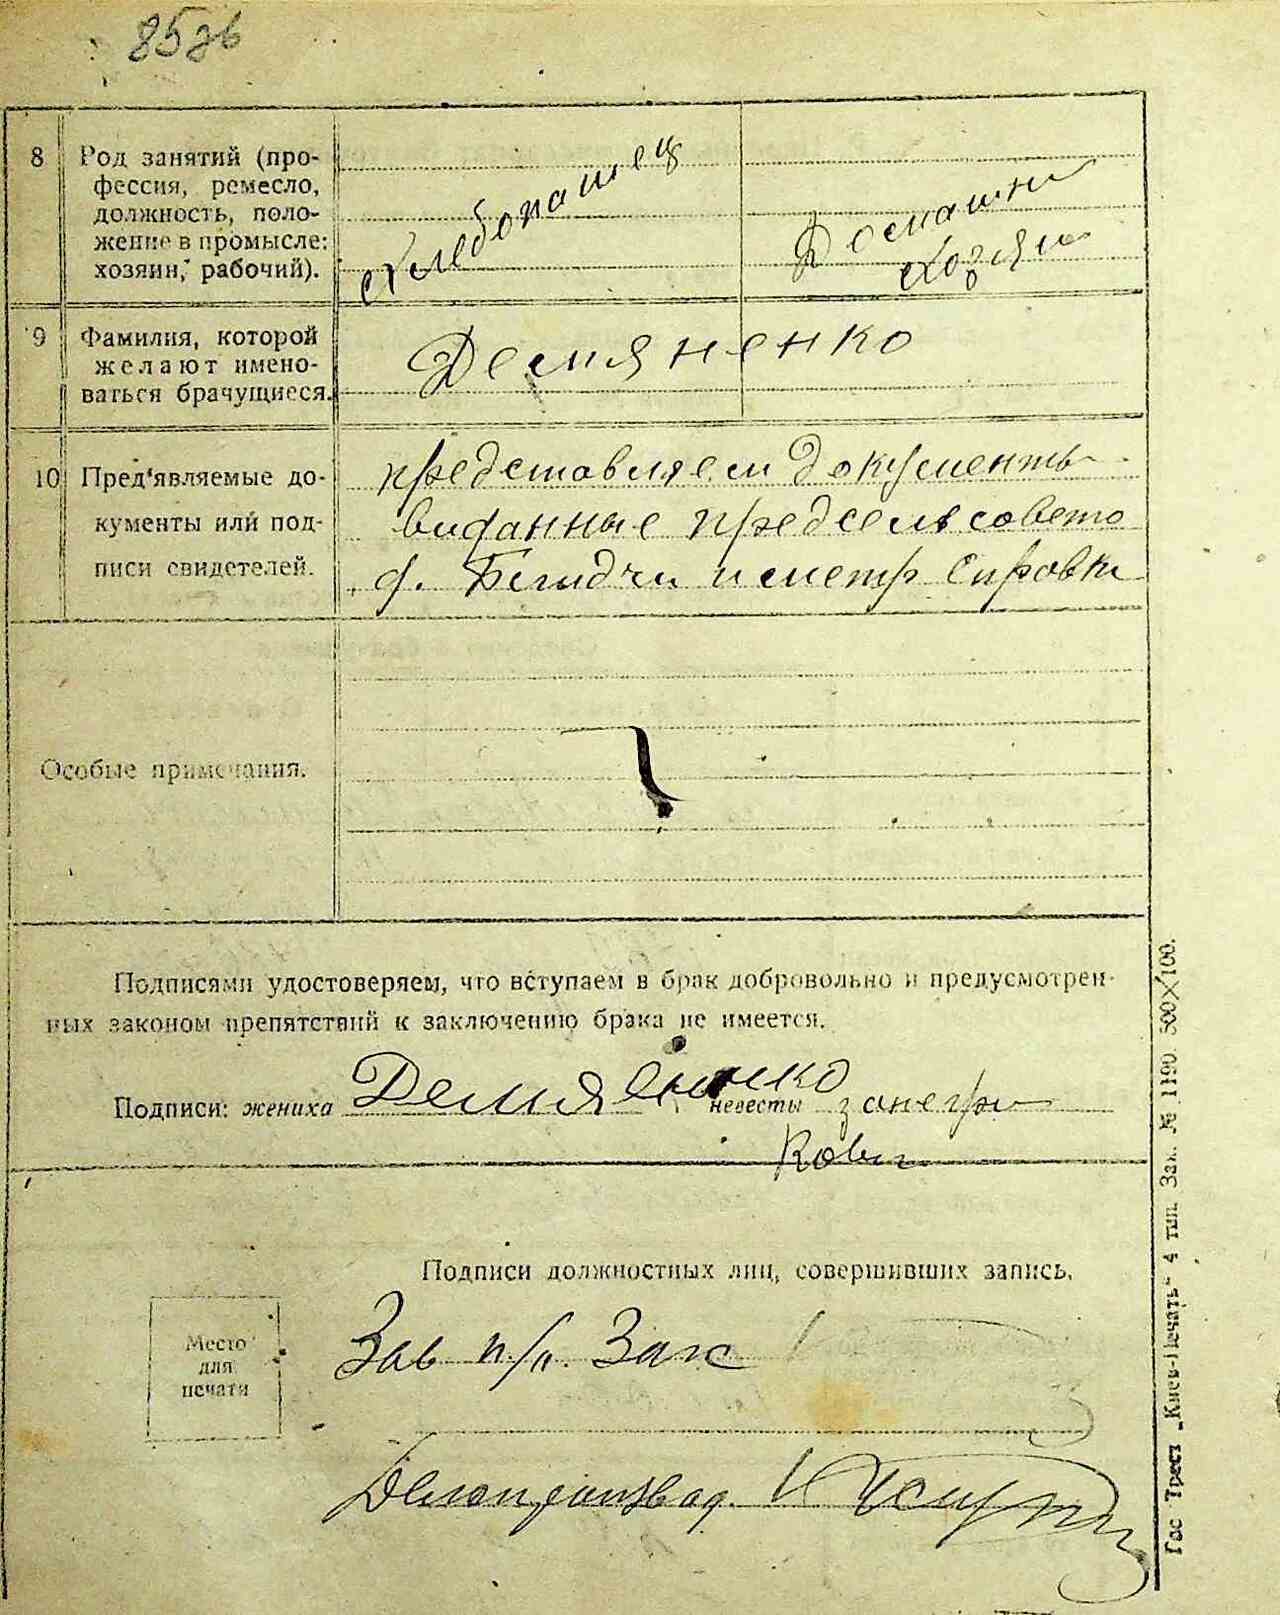 85зв
8 Род занятий (про-
фессия, ремесло,
должность, поло-
жение в промысле:
хозяин, рабочий).
Хлебопашец
Домашни
хозяи
9 Фамилия, которой
желают имено-
ваться брачущиеся.
Демяненко
10 Пред'являемые до-
кументы или под-
писи свидетелей.
представляем документы
виданные предсельсовето
и метр
Особые примечания.
Подписями удостоверяем, что вступаем в брак добровольно и предусмотрен-
ных законом препятствий к заключению брака не имеется.
Подписи: жениха Демяненко невесты занегри
кови
Подписи должностных лиц, совершивших запись.
Место
для
печати
Зав п/п. Загс
Делопроизвод.
Гос Трест „Киев-Печать" 4 тип. Зак. № 1190 500×100.